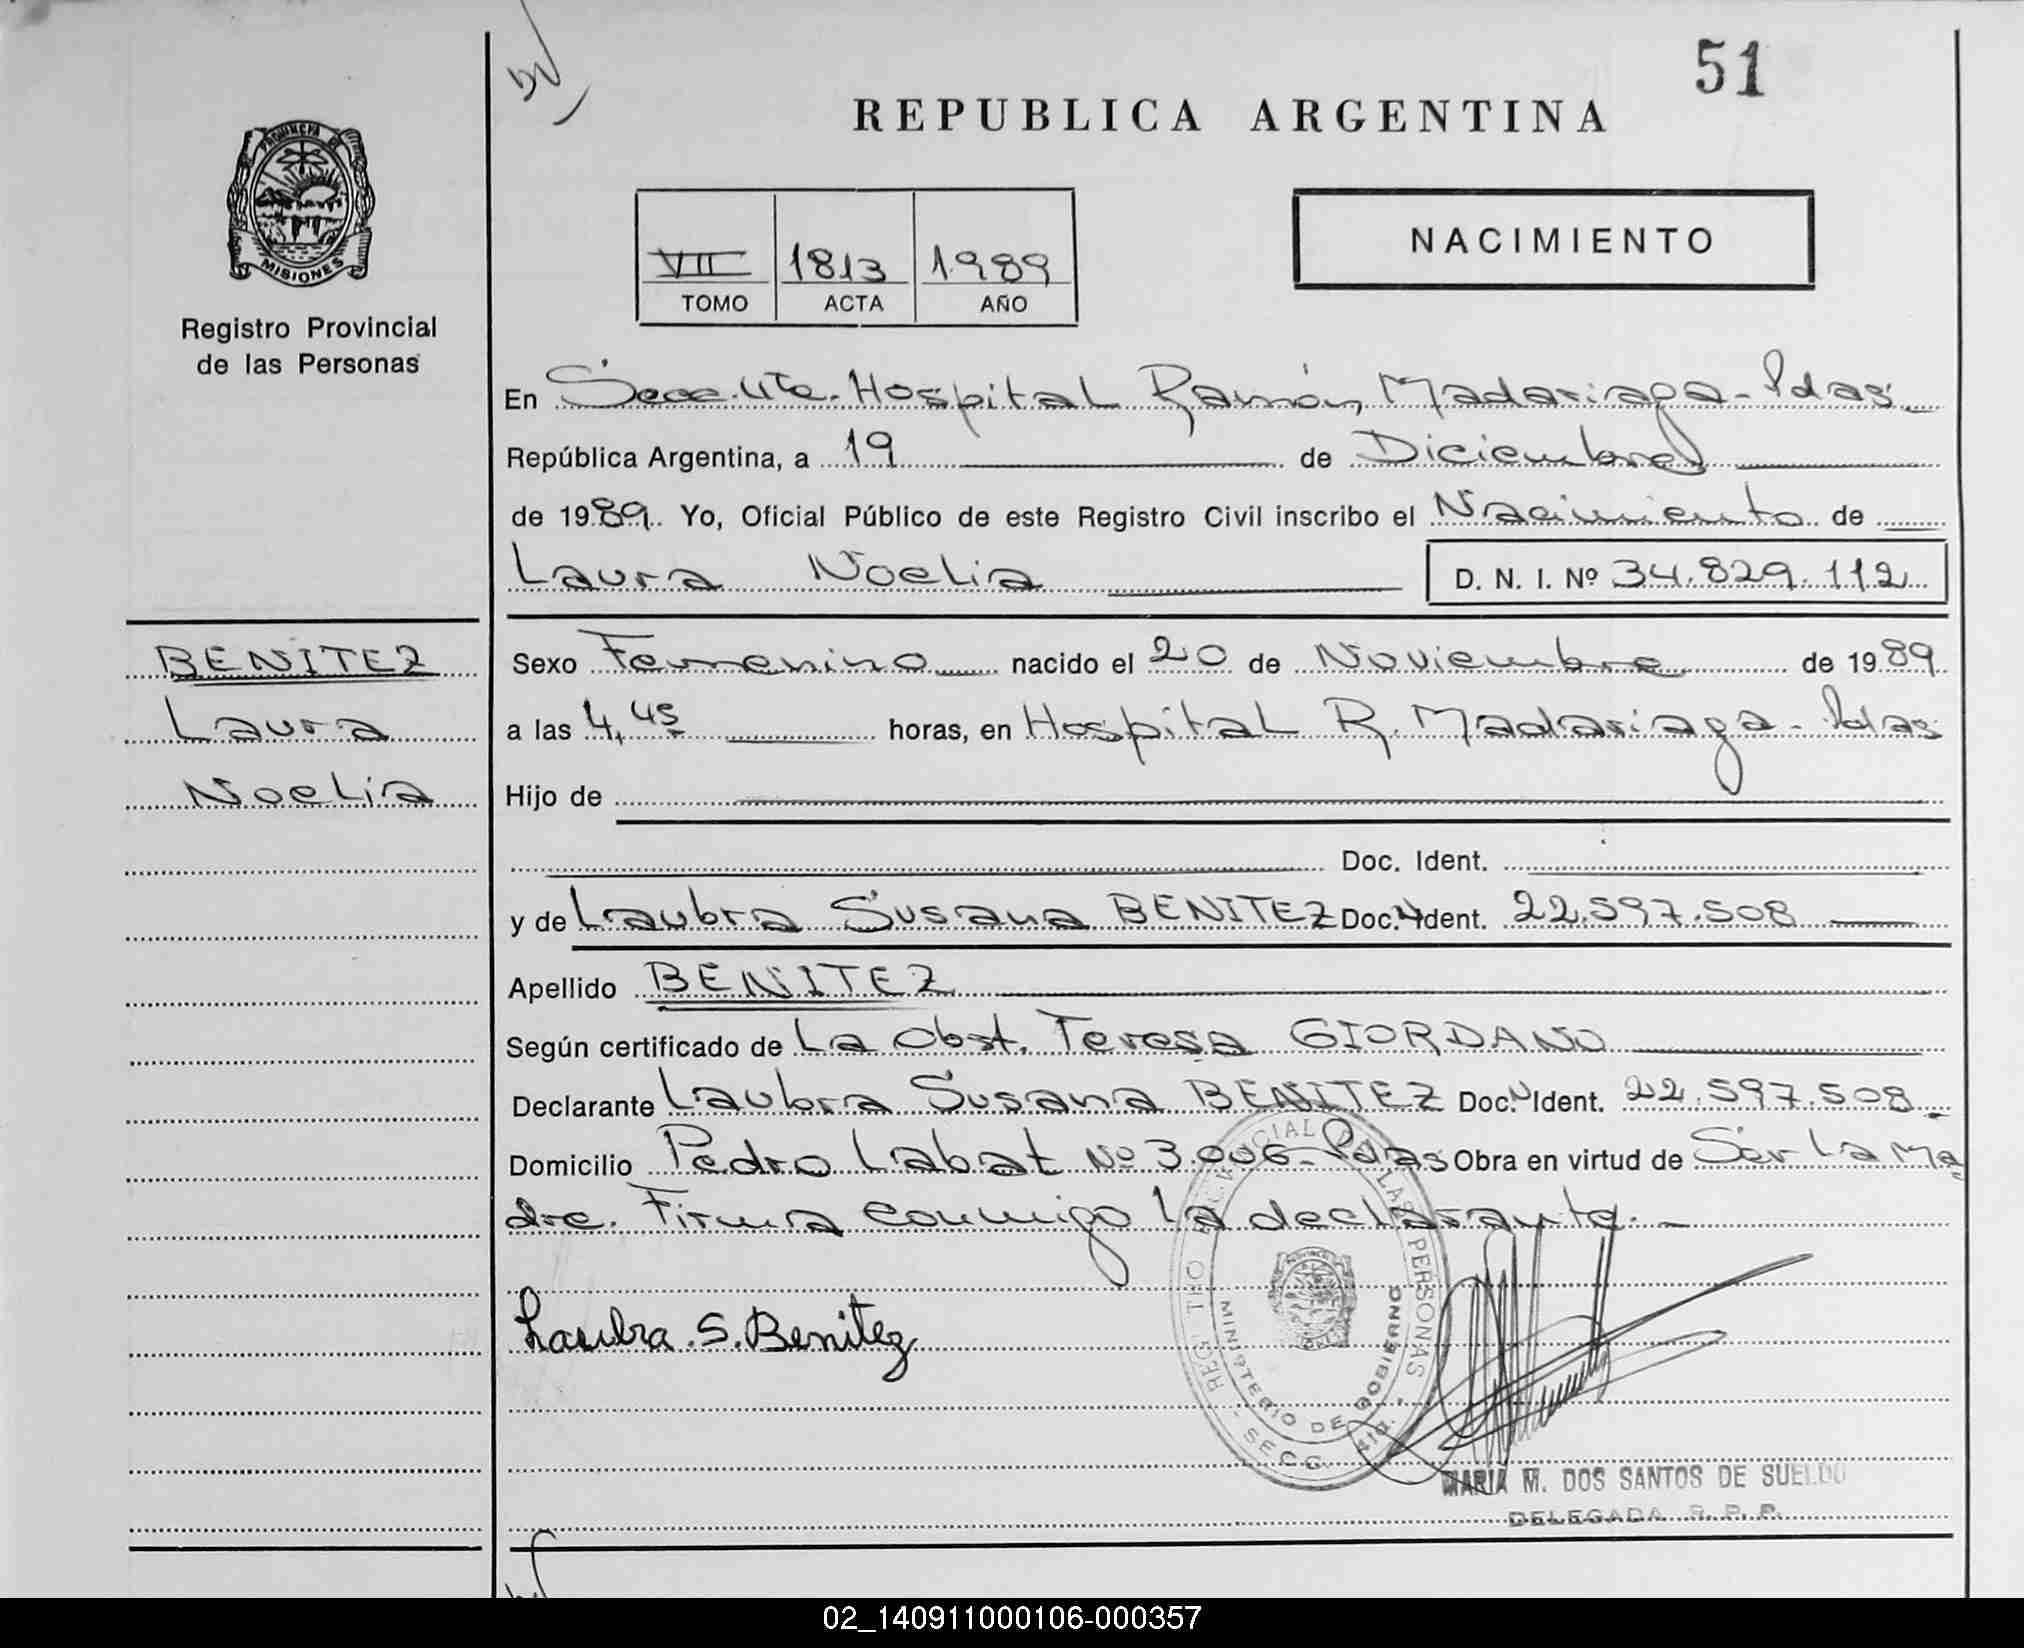 51
REPUBLICA ARGENTINA
PROVINCIA DE
MISIONES
Registro Provincial
de las Personas
NACIMIENTO
VII 1813 1989
TOMO ACTA AÑO
En Secc. 4ta. Hospital Ramón Madariaga - Pdas
República Argentina, a 19 de Diciembre
de 1989. Yo, Oficial Público de este Registro Civil inscribo el Nacimiento de
Laura Noelia D. N. I. Nº 34.829.112
BENITEZ
Laura
Noelia
Sexo Femenino nacido el 20 de Noviembre de 1989
a las 4,45 horas, en Hospital R. Madariaga - Pdas
Hijo de
Doc. Ident.
y de Laubra Susana BENITEZ Doc. Ident. 22.597.508
Apellido BENITEZ
Según certificado de La Obst. Teresa GIORDANO
Declarante Laubra Susana BENITEZ Doc. Ident. 22.597.508
Domicilio Pedro Labat Nº 3.006 - Pdas Obra en virtud de Ser La Ma
dre. Firma conmigo la declarante. -
Laubra. S. Benitez
REGISTRO PROVINCIAL DE LAS PERSONAS
MINISTERIO DE GOBIERNO
- SECC. 4ta. -
MARIA M. DOS SANTOS DE SUELDO
DELEGADA R. P. P.
02_140911000106-000357